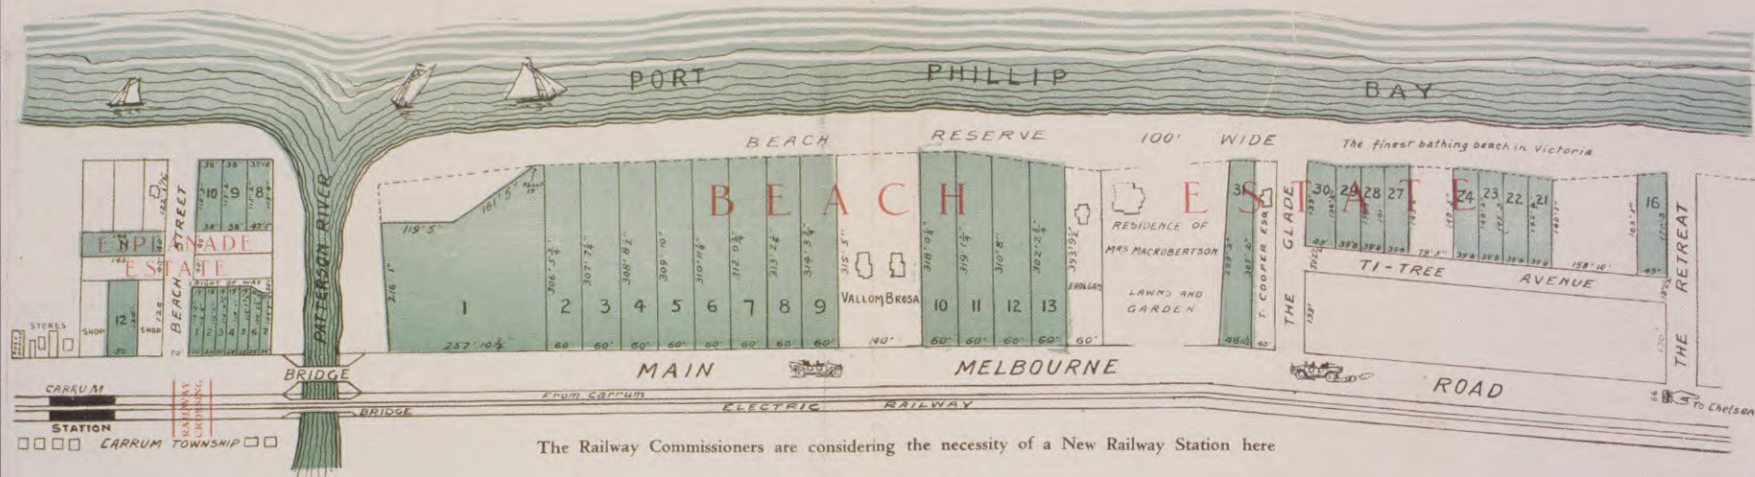 PORT PHILLIP BAY
BEACH RESERVE 100' WIDE
The finest bathing beach in Victoria
BEACH ESTATE
ESPLANADE
ESTATE
BEACH STREET
PATERSON RIVER
10 9 8
RIGHT OF WAY
1 2 3 4 5 6 7
STORES
SHOP
12
SHOP
119' 5"
161' 5"
216' 1"
1 2 3 4 5 6 7 8 9
257' 10½"
60' 60' 60' 60' 60' 60' 60' 60'
306' 5¼"
307' 7⅛"
308' 8½"
309' 10"
313' 2¾"
315' 5"
VALLOMBROSA
140'
10 11 12 13
60' 60' 60' 60' 60'
319' 1¼"
310' 8"
393' 9½"
RESIDENCE OF
MRS MACROBERTSON
LAWNS AND
GARDEN
31
T. COOPER ESQ
THE GLADE
30 29 28 27
24 23 22 21
16
158' 10"
TI-TREE AVENUE
THE RETREAT
BRIDGE
MAIN MELBOURNE ROAD
CARRUM
STATION
RAILWAY
CROSSING
BRIDGE
From Carrum
ELECTRIC RAILWAY
To Chelsea
CARRUM TOWNSHIP
The Railway Commissioners are considering the necessity of a New Railway Station here